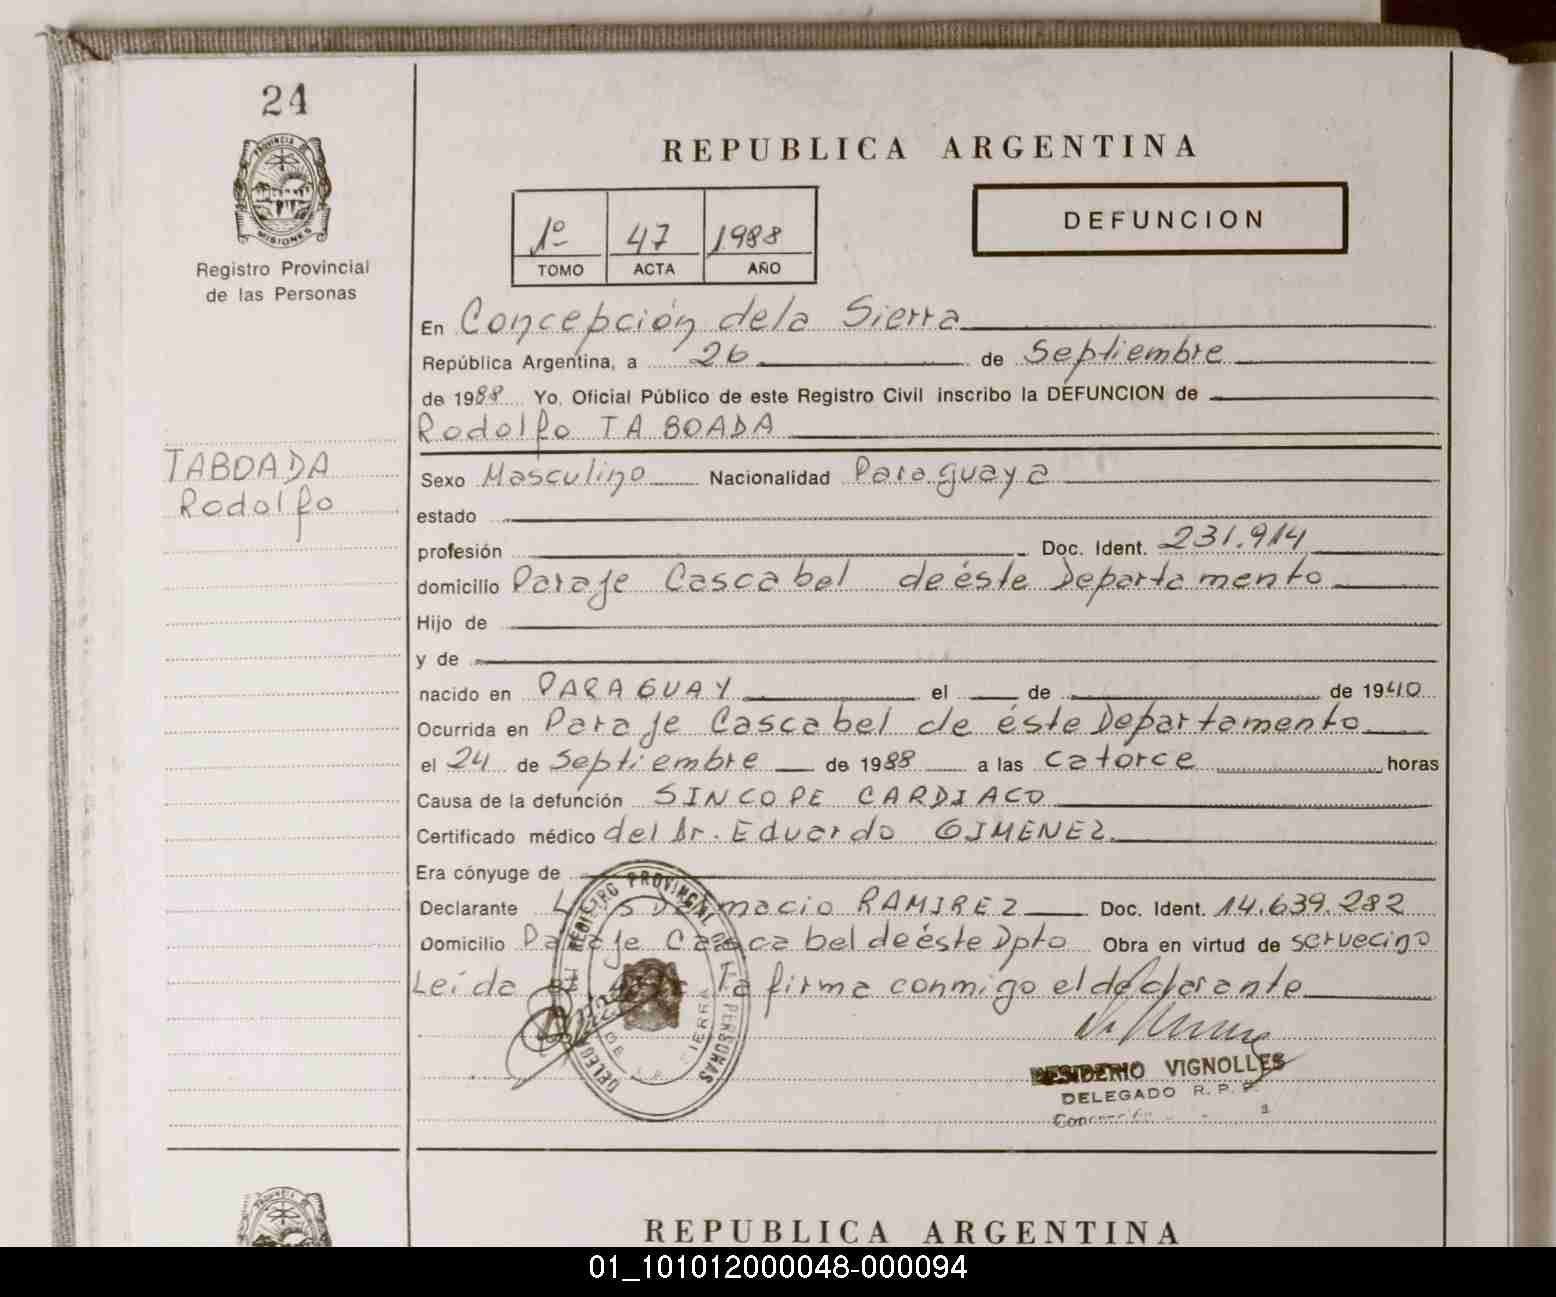 24
PROVINCIA DE
MISIONES
Registro Provincial
de las Personas
TABOADA
Rodolfo
REPUBLICA ARGENTINA
1º 47 1988
TOMO ACTA AÑO
DEFUNCION
En Concepción dela Sierra
República Argentina, a 26 de Septiembre
de 1988 Yo, Oficial Público de este Registro Civil inscribo la DEFUNCION de
Rodolfo TABOADA
Sexo Masculino Nacionalidad Paraguaya
estado
profesión Doc. Ident. 231.914
domicilio Paraje Cascabel de éste Departamento
Hijo de
y de
nacido en PARAGUAY el de de 1940
Ocurrida en Paraje Cascabel de éste Departamento
el 24 de Septiembre de 1988 a las catorce horas
Causa de la defunción SINCOPE CARDIACO
Certificado médico del Dr. Eduardo GIMENEZ
Era cónyuge de
Declarante RAMIREZ Doc. Ident. 14.639.282
Domicilio Paraje Cascabel de éste Dpto Obra en virtud de ser vecino
Leída el acta la firma conmigo el declarante
REGISTRO PROVINCIAL DE L PERSONAS
SIERRA
DESIDERIO VIGNOLLES
DELEGADO R. P. P.
REPUBLICA ARGENTINA
01_101012000048-000094